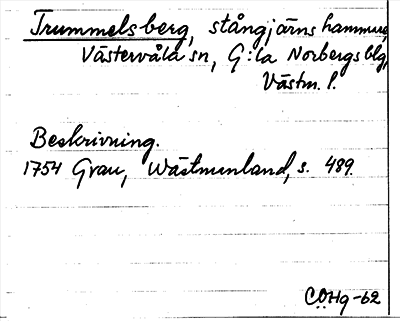 Trummelsberg, stångjärnshammare,
Västervåla sn, G:la Norbergs blg,
Västm. l.
Beskrivning.
1754 Grau, Wästmanland, s. 489.
CÖHg-62